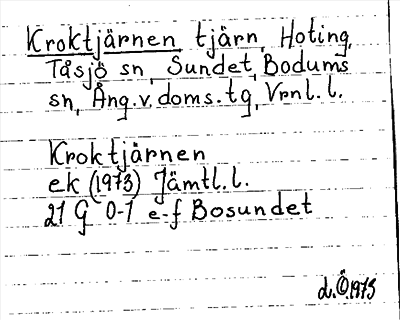 Kroktjärnen tjärn, Hoting,
Tåsjö sn, Sundet, Bodums
sn, Ång.v.doms.tg, Vrnl.l.
Kroktjärnen
ek (1973) Jämtl.l.
21 G 0-1 e-f Bosundet
d.Ö.1973